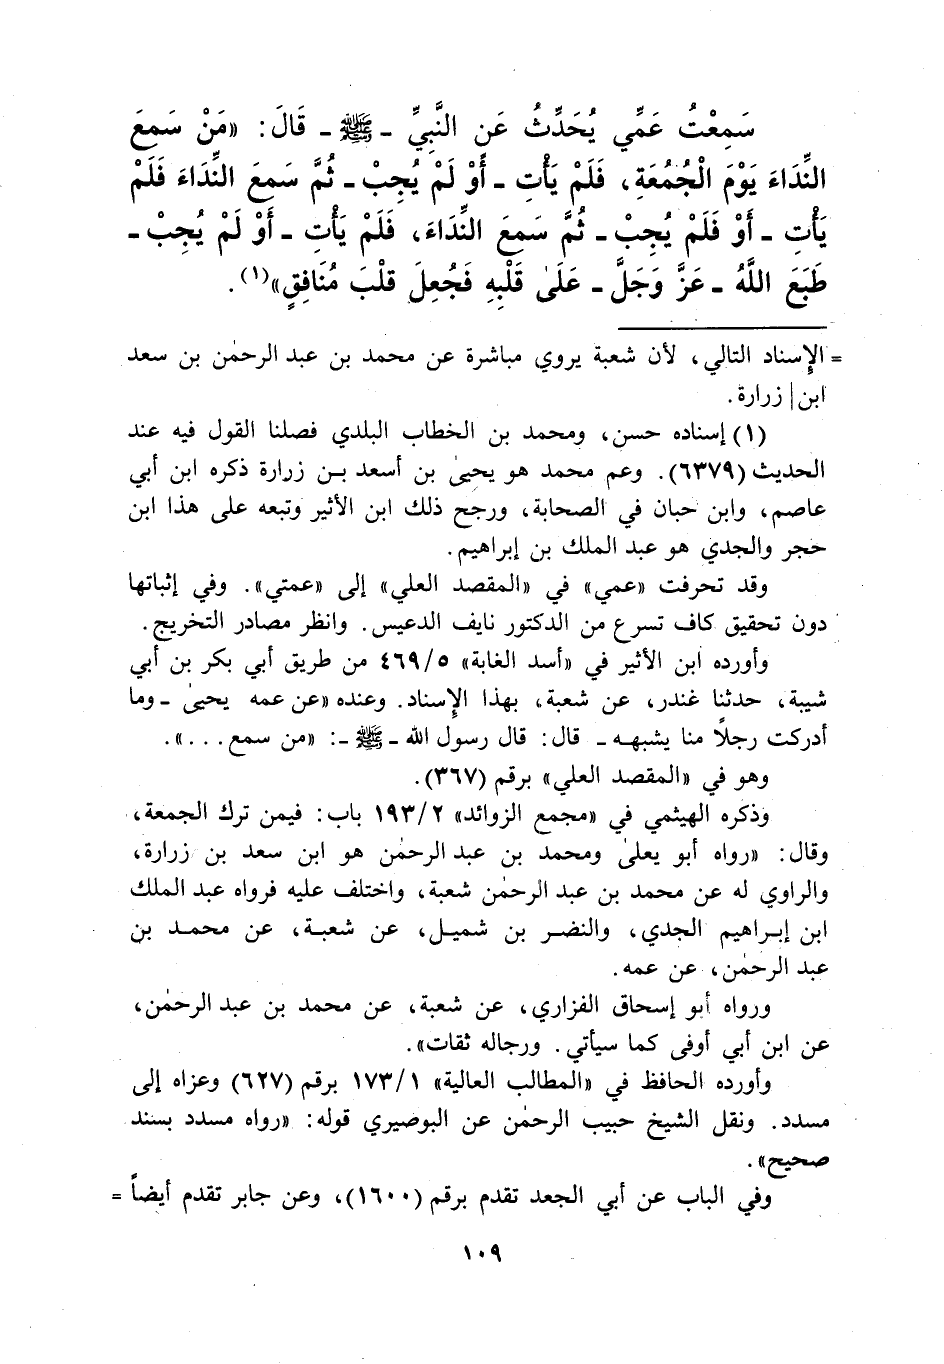 سَمِعْتُ عَمِّي يُحَدِّثُ عَنِ النَّبِيِّ ـ ﷺ ـ قَالَ: «مَنْ سَمِعَ
النِّدَاءَ يَوْمَ الْجُمُعَةِ، فَلَمْ يَأْتِ ـ أَوْ لَمْ يُجِبْ ـ ثُمَّ سَمِعَ النِّدَاءَ فَلَمْ
يَأْتِ ـ أَوْ فَلَمْ يُجِبْ ـ ثُمَّ سَمِعَ النِّدَاءَ، فَلَمْ يَأْتِ ـ أَوْ لَمْ يُجِبْ ـ
طَبَعَ اللَّهُ ـ عَزَّ وَجَلَّ ـ عَلَىٰ قَلْبِهِ فَجُعِلَ قَلْبَ مُنَافِقٍ»(١).
= الإسناد التالي، لأن شعبة يروي مباشرة عن محمد بن عبد الرحمٰن بن سعد
ابن زرارة.
(١) إسناده حسن، ومحمد بن الخطاب البلدي فصلنا القول فيه عند
الحديث (٦٣٧٩). وعم محمد هو يحيىٰ بن أسعد بـن زرارة ذكره ابن أبي
عاصم، وابن حبان في الصحابة، ورجح ذلك ابن الأثير وتبعه على هذا ابن
حجر والجدي هو عبد الملك بن إبراهيم.
وقد تحرفت «عمي» في «المقصد العلي» إلى «عمتي». وفي إثباتها
دون تحقيق كاف تسرع من الدكتور نايف الدعيس. وانظر مصادر التخريج.
وأورده ابن الأثير في «أسد الغابة» ٤٦٩/٥ من طريق أبي بكر بن أبي
شيبة، حدثنا غندر، عن شعبة، بهذا الإسناد. وعنده «عن عمه يحيىٰ ـ وما
أدركت رجلاً منا يشبهـه ـ قال: قال رسول الله ـ ﷺ ـ: «من سمع...».
وهو في «المقصد العلي» برقم (٣٦٧).
وذكره الهيثمي في «مجمع الزوائد» ١٩٣/٢ باب: فيمن ترك الجمعة،
وقال: «رواه أبو يعلىٰ ومحمد بن عبد الرحمٰن هو ابن سعد بن زرارة،
والراوي له عن محمد بن عبد الرحمٰن شعبة، واختلف عليه فرواه عبد الملك
ابن إبـراهيم الجدي، والنضـر بن شميـل، عن شعبـة، عن محمـد بن
عبد الرحمٰن، عن عمه.
ورواه أبو إسحاق الفزاري، عن شعبة، عن محمد بن عبد الرحمٰن،
عن ابن أبي أوفى كما سيأتي. ورجاله ثقات».
وأورده الحافظ في «المطالب العالية» ١٧٣/١ برقم (٦٢٧) وعزاه إلى
مسدد. ونقل الشيخ حبيب الرحمٰن عن البوصيري قوله: «رواه مسدد بسند
صحيح».
وفي الباب عن أبي الجعد تقدم برقم (١٦٠٠)، وعن جابر تقدم أيضاً =
١٠٩